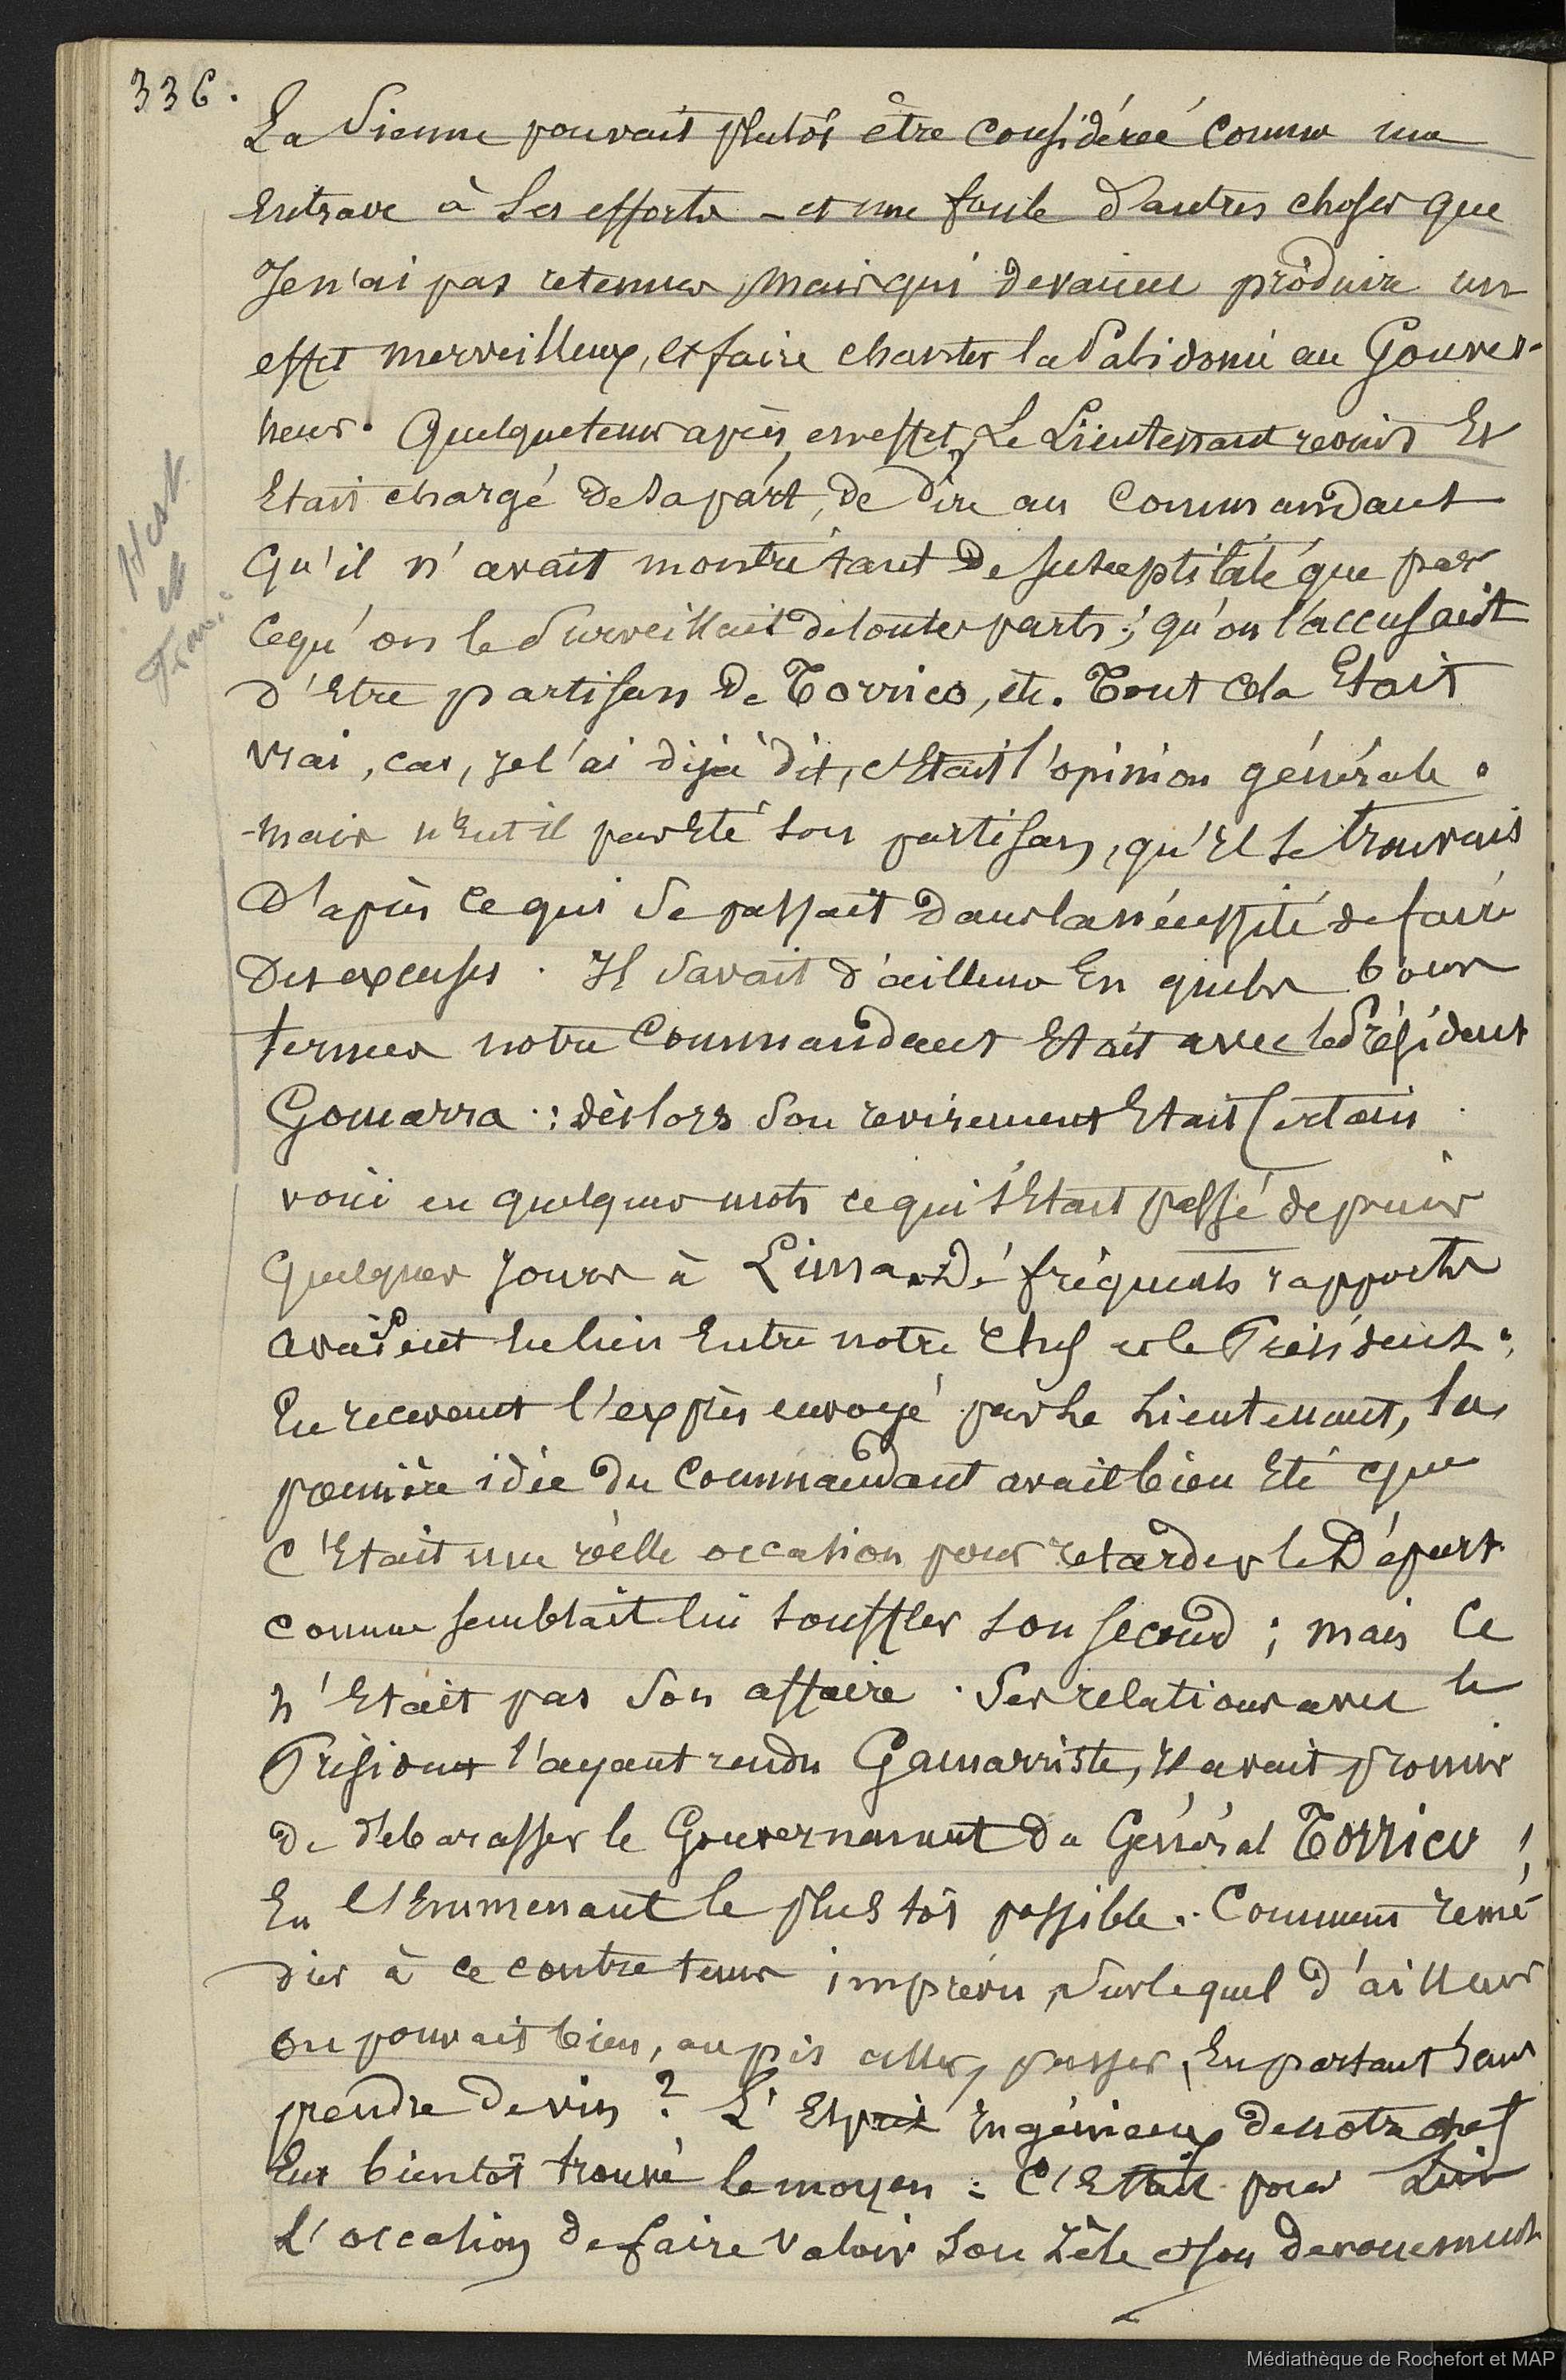 336.
La Sienne pouvait plutôt être considérée comme une
Entrave à Ses efforts – et une foule d'autres choses que
Je n'ai pas retenues, mais qui devaient produire un
effet merveilleux, et faire chanter la Palidonie au Gouver-
neur. Quelque tems après, en effet, Le Lieutenant revint Et
Etait chargé de sa part, de dire au Commandant
Qu'il n'avait montré tant de suseptibilité que par
Cequ'on le Surveillait de toutes parts ; qu'on l'accusait
d'Etre partisan de Torrico, etc. Tout Cela Etait
vrai, car, je l'ai déjà dit, c'Etait l'opinion générale.
mais n'Eut il pas Eté son partisan, qu'Il se trouvait
D'après ce qui Se passait dans la nécessité de faire
Des excuses. Il Savait d'ailleurs En quels bons
termes notre Commandant Etait avec le Président
Gomarra : dès lors Son revirement Etait Certain.
voici en quelques mots ce qui s'Etait passé depuis
Quelques Jours à Lima. De fréquents rapports
avaient eu lieu Entre notre Chef et le Président.
En recevant l'exprès envoyé par Le Lieutenant, la
première idée du Commandant avait bien Eté que
C'Etait une réelle occasion pour retarder le Départ
comme semblait lui souffler son second ; mais Ce
n'Etait pas Son affaire. Ses relations avec le
Président l'ayant rendu Gamarriste, Il avait promis
De débarasser le Gouvernement du Général Torrico,
En l'Emmenant le plus tôt possible. Comment remé
dier à ce contre tems imprévu, Sur lequel d'ailleurs
On pouvait bien, au pis aller, passer, En partant sans
prendre de vin ? L'Esprit Ingénieux de notre chef
Eut bientôt trouvé le moyen : C'Etait pour Lui
L'occasion de faire valoir Son Zèle et son devouement
Médiathèque de Rochefort et MAP